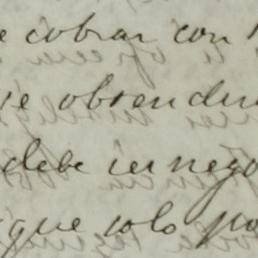 e cobrar con
ie obtendr
debe in nego
que solo po